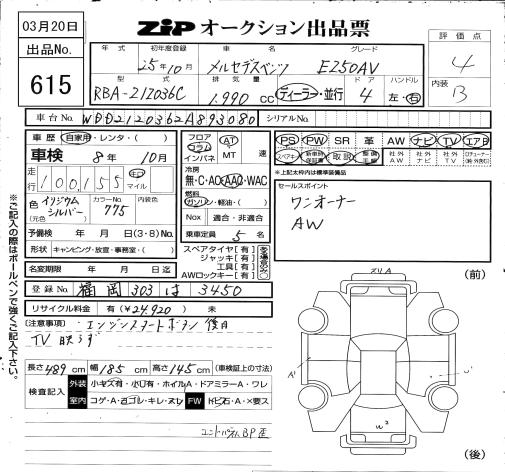 03月20日
ZiP オークション出品票
出品No.
615
年式 初年度登録 車名 グレード
25年10月 メルセデスベンツ E250AV
型式 排気量 ドア ハンドル
RBA-212036C 1,990 cc ディーラー・並行 4 左・右
評価点
4
内装
B
車台No. WDD2120362A893080 シリアルNo.
車歴 自家用・レンタ・( )
車検 8年 10月
走行 100,155 キロ マイル
色(元色) イリジウムシルバー カラーNo. 775 内装色
予備検 年 月 日(3・8)No.
形状 キャンピング・放宣・事務室・( )
名変期限 年 月 日迄
フロア コラム インパネ AT MT 速
冷房
無・C・AC・AAC・WAC
燃料
ガソリン・軽油・( )
Nox 適合・非適合
乗車定員 5 名
スペアタイヤ[有]
ジャッキ[有]
工具[有]
AWロックキー[有]
PS PW SR 革 AW ナビ TV エアB
スペアキー 新車時保証書 取説 整備手帳 社外AW 社外ナビ 社外TV
※上記太枠内は標準装備品
セールスポイント
ワンオーナー
AW
登録No. 福岡 303 は 3450
リサイクル料金 有(¥24,920) 未
(注意事項) エンジンスタートボタン後日
TV映らず
長さ489cm 幅185cm 高さ145cm (車検証上の寸法)
検査記入 外装 小キズ有・小凹有・ホイルA・ドアミラーA・ワレ
室内 コゲ・A・ヨゴレ・キレ・スレ FW トビ石・A・×要ス
(前)
(後)
※ご記入の際はボールペンで強くご記入下さい。